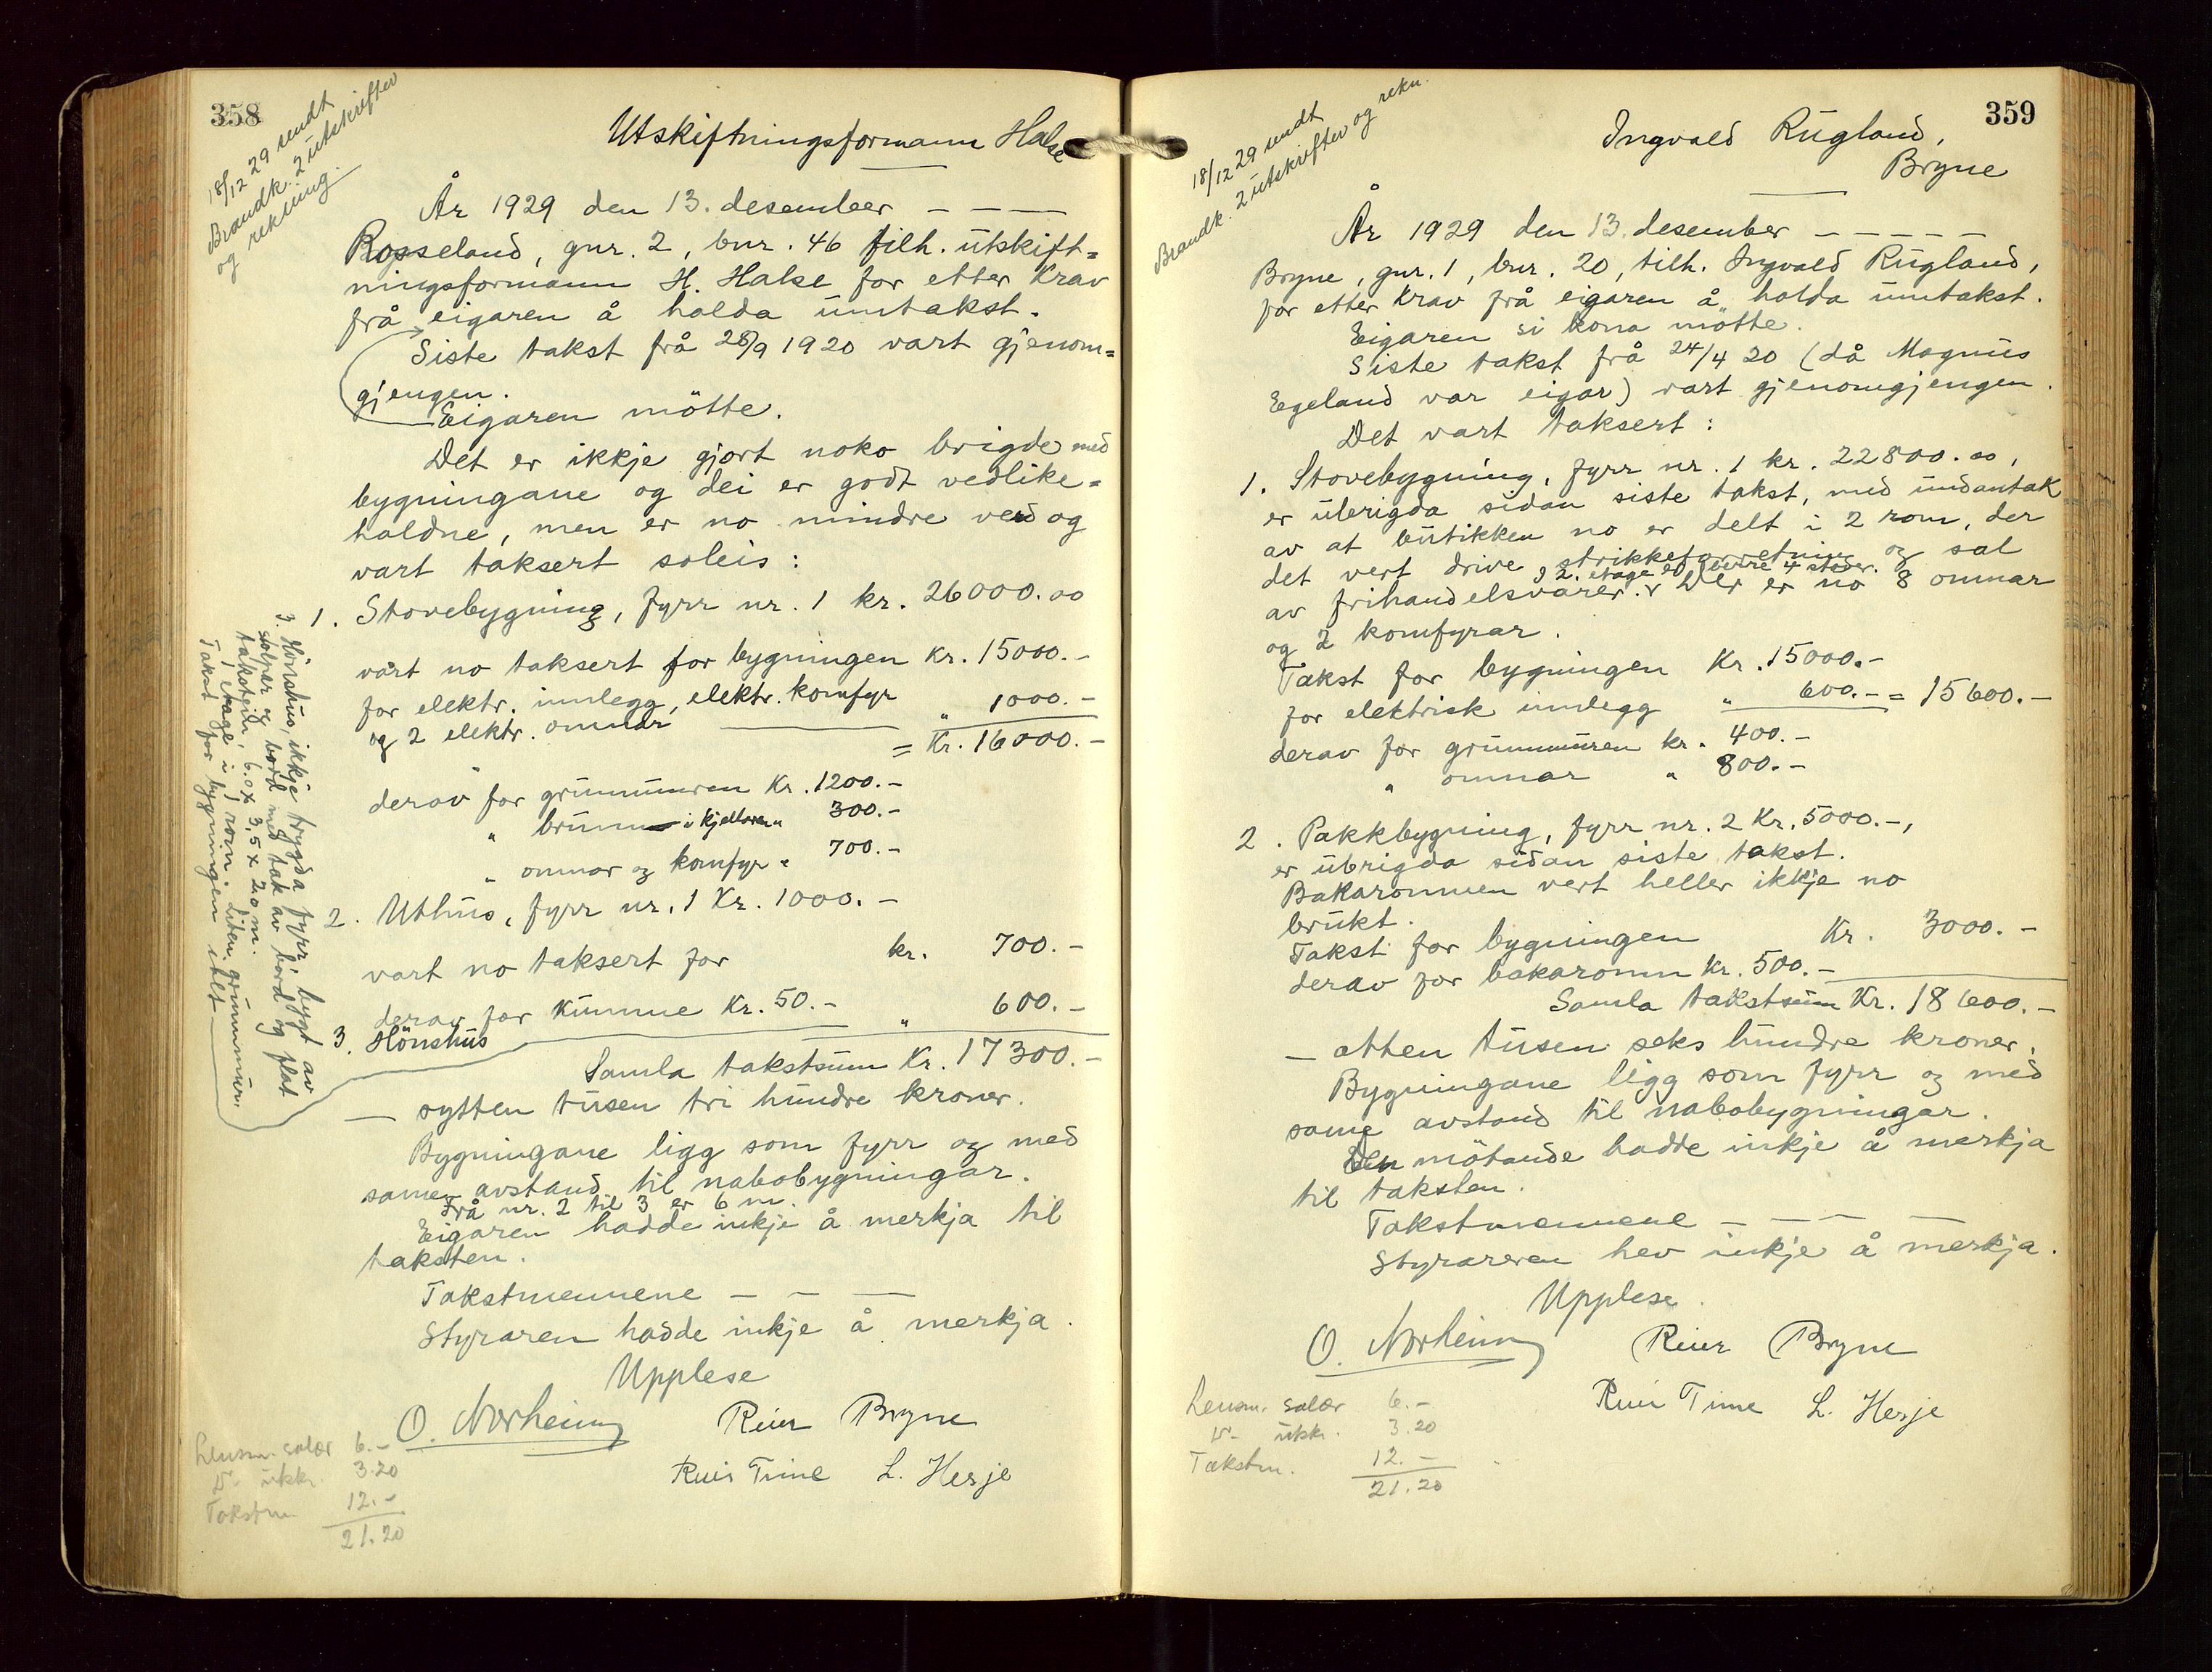 358
18/12 29 sendt
Brandk. 2 utskrifter
og rekning.
Utskiftningsformann Halse
År 1929 den 13. desember - - -
Rosseland, gnr. 2, bnr. 46 tilh. utskift=
ningsformann H. Halse for etter krav
frå eigaren å halda umtakst.
Siste takst frå 28/9 1920 vart gjenom=
gjengen.
Eigaren mötte.
Det er ikkje gjort noko brigde med
bygningane og dei er godt vedlike=
haldne, men er no mindre verd og
vart taksert soleis:
1. Stovebygning, fyrr nr. 1 kr. 26000.00
vart no taksert for bygningen kr. 15000.-
for elektr. innlegg, elektr. komfyr
og 2 elektr. omnar " 1000.-
= Kr. 16000.-
derav for grunnmuren Kr. 1200.-
" brunn i kjellaren " 300.-
" omnar og komfyr " 700.-
2. Uthus, fyrr nr. 1 Kr. 1000.-
vart no taksert for kr. 700.-
derav for kumme Kr. 50.-
3. Hönshus " 600.-
Samla takstsum Kr. 17300.-
— sytten tusen tri hundre kroner.
Bygningane ligg som fyrr og med
same avstand til nabobygningar.
Frå nr. 2 til 3 er 6 m.
Eigaren hadde inkje å merkja til
taksten.
Takstmennene - - -
Styraren hadde inkje å merkja.
Upplese
O. Norheim Reier Bryne
Reier Time L. Herje
3. Hönshus, ikkje trygda fyrr, bygt av
stolpar og bord med tak av bord og flat
takstein, 6.0 x 3,5 x 2.0 m.
1 etage i 1 rom. Liten grunnmur.
Takst for bygningen ihlt
Lensm. salær 6.-
D- ukk. 3.20
Takstm. 12.-
21.20
359
18/12 29 sendt
Brandk. 2 utskrifter og rekn.
Ingvald Rugland,
Bryne
År 1929 den 13. desember - - - - -
Bryne, gnr. 1, bnr. 20, tilh. Ingvald Rugland,
for etter krav frå eigaren å halda umtakst.
Eigaren si kona mötte.
Siste takst frå 24/4 20 (då Magnus
Egeland var eigar) vart gjenomgjengen.
Det vart taksert:
1. Stovebygning, fyrr nr. 1 kr. 22800.00,
er ubrigda sidan siste takst, med undantak
av at butikken no er delt i 2 rom, der
det vert drive strikkeforretning og sal
I 2. etage er övre 4 stover.
av frihandelsvarer. v Der er no 8 omnar
og 2 komfyrar.
Takst for bygningen Kr. 15000.-
for elektrisk innlegg " 600.- = 15600.-
derav for grunnmuren kr. 400.-
" omnar " 800.-
2. Pakkbygning, fyrr nr. 2 Kr. 5000.-,
er ubrigda sidan siste takst.
Bakaromnen vert heller ikkje no
brukt.
Takst for bygningen Kr. 3000.-
derav for bakaromn Kr. 500.-
Samla takstsum Kr. 18600.-
— atten tusen seks hundre kroner.
Bygningane ligg som fyrr og med
same avstand til nabobygningar.
Den mötande hadde inkje å merkja
til taksten.
Takstmennene - - - -
Styraren hev inkje å merkja.
Upplese.
O. Norheim Reier Bryne
Reier Time L. Herje
Lensm. salær 6.-
D- ukk. 3.20
Takstm. 12.-
21.20